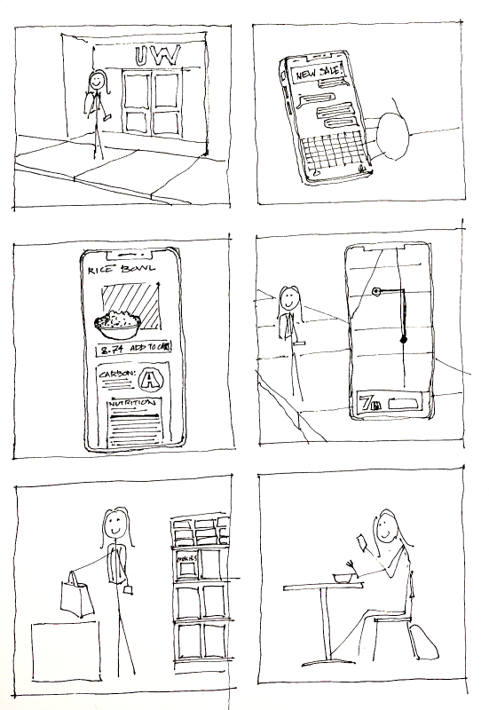 UW
NEW SALE!
RICE BOWL
8.74 ADD TO CART
CARBON:
A
NUTRITION
7m